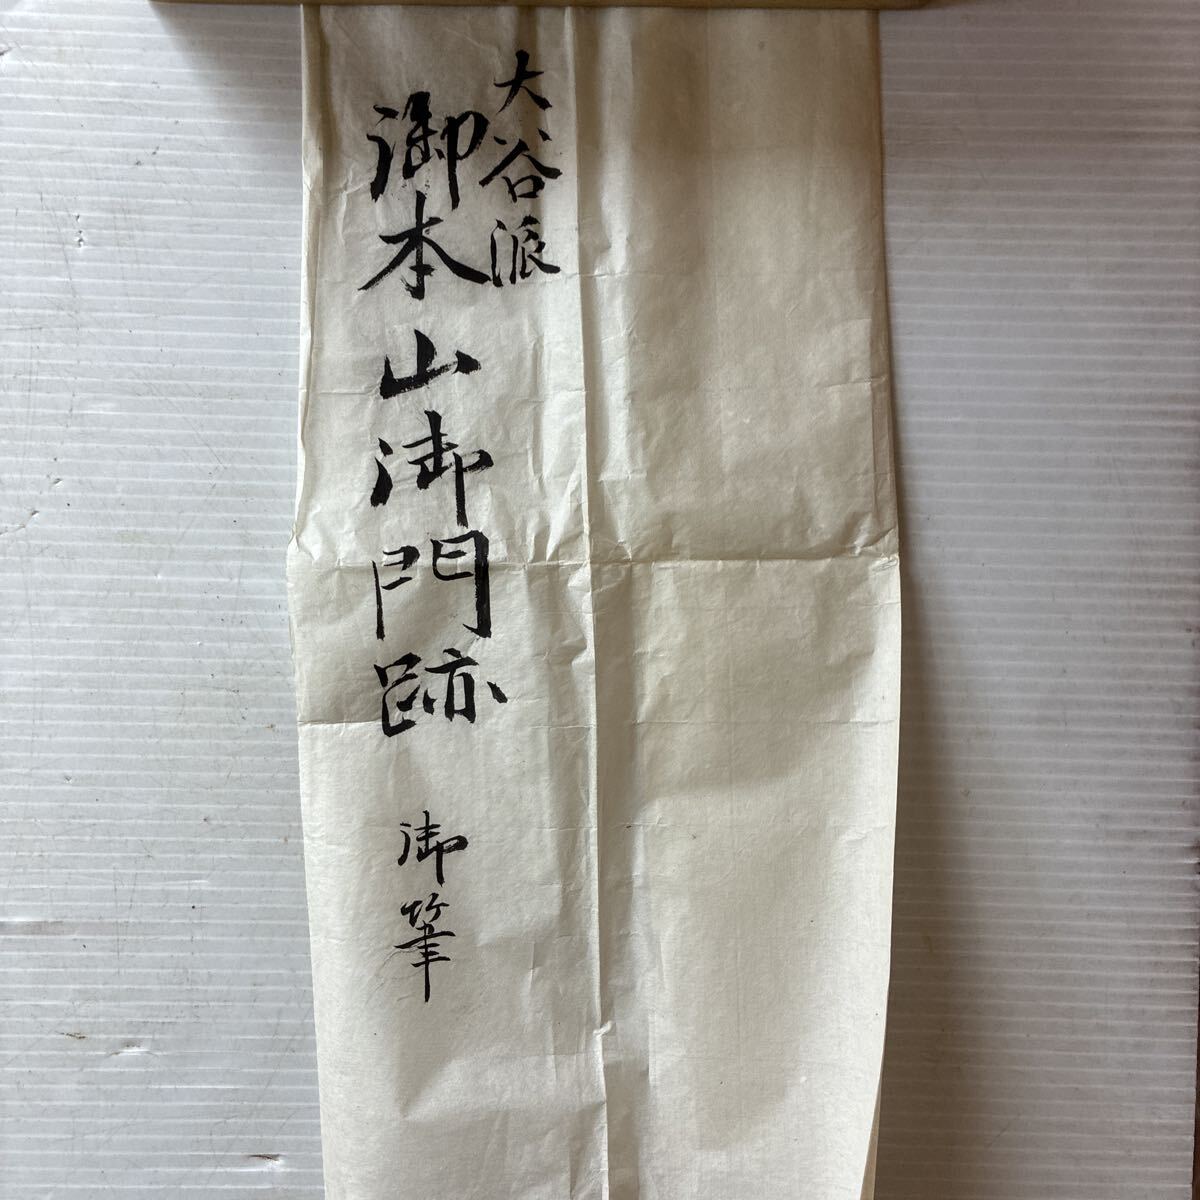 大谷派
御本山御門跡
御筆